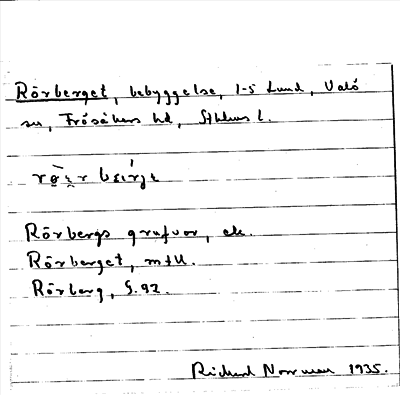 Rörberget, bebyggelse, 1-5 Lund, Valö
sn, Frösåkers hd, Sthlms l.
Rörbergs grufvor, ek.
Rörberget, mtU.
Rörberg, S.92.
Richard Norrman 1935.